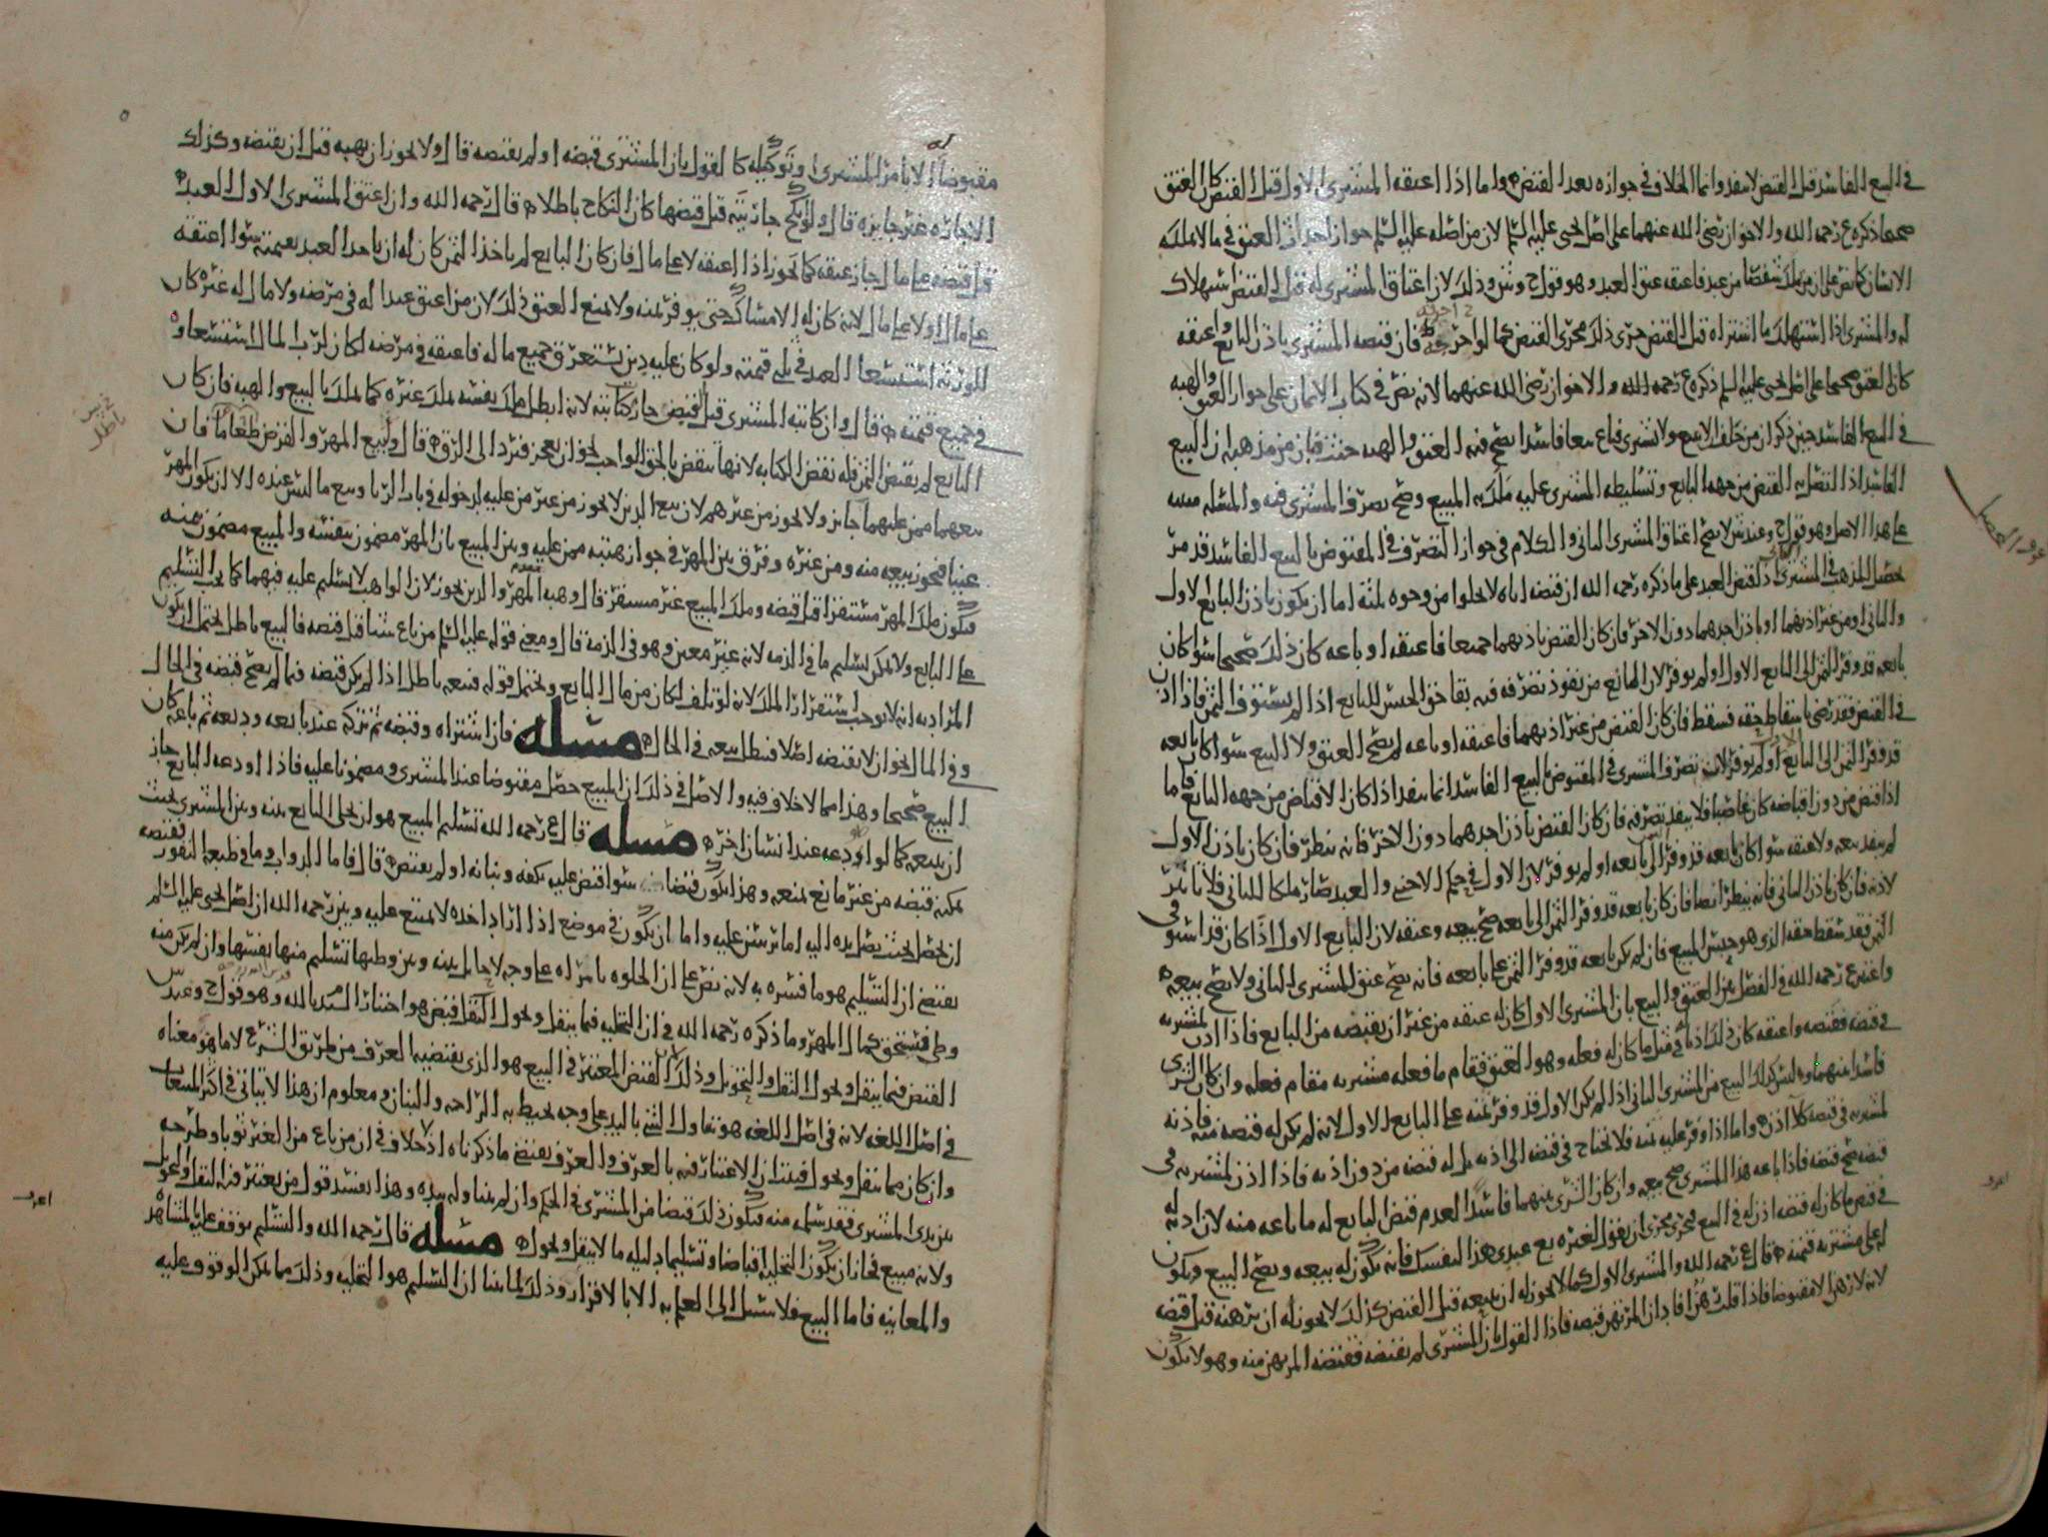 في البيع الفاسد قبل القبض لا ينفذ وانما الخلاف في جوازه بعد القبض واما اذا اعتقه المشتري الاول قبل القبض كان العتق
صحيحا ذكره ع رحمه الله والاخوان رضي الله عنهما على اصل يحيى عليه السلم لان من اصله عليه السلم جواز العتق في ما لا يملكه
الانسان كما نص على ان من ملك شقصا من عبد فاعتقه عتق العبد وهو قول ح وش وذلك لان اعتاق المشتري له قبل القبض استهلاك
له والمشتري اذا استهلك ما اشتراه قبل القبض جرى ذلك مجرى القبض كما لو فان قبضه المشتري باذن البايع واعتقه
كان العتق صحيحا على اصل يحيى عليه السلم ذكره ع رحمه الله والاخوان رضي الله عنهما لانه نص في كتاب الايمان على جواز العتق والهبه
في البيع الفاسد حين ذكر ان من حلف الا يبيع ولا يشتري فباع بيعا فاسدا يصح فيه العتق والهبه حنث فبان من مذهبه ان البيع
الفاسد اذا اتصل به القبض من جهه البايع وتسليطه المشتري عليه ملك به المبيع وصح تصرف المشتري فيه والمسله مبنيه
على هذا الاصل وهو قول ح وعند ش لا يصح اعتاق المشتري الثاني والكلام في جواز التصرف في المقبوض بالبيع الفاسد قد مر
تحصيل المذهب في المشتري لقبض العبد على ما ذكره رحمه الله ان قبضه اياه لا يخلوا من وجوه ثلثه اما ان يكون باذن البايع الاول
والثاني او من غير اذنهما او باذن احدهما دون الاخر فان كان القبض باذنهما جميعا فاعتقه او باعه كان ذلك صحيحا سوا كان
بايعه قد وفر الثمن الى البايع الاول او لم يوفر لان المانع من نفوذ تصرفه فيه بقا حق الحبس للبايع اذا لم يستوف الثمن فاذا اذن
في القبض فقد رضي باسقاط حقه فسقط فان كان القبض من غير اذنهما فاعتقه او باعه لم يصح العتق ولا البيع سوا كان بايعه
قد وفر الثمن الى البايع او لم يوفر لان تصرف المشتري في المقبوض بالبيع الفاسد انما ينفذ اذا كان الاقباض من جهه البايع فاما
اذا قبض من دون اقباضه كان غاصبا فلا ينفذ تصرفه فان كان القبض باذن احدهما دون الاخر فانه ينظر فان كان باذن الاول
لم ينفذ بيعه ولا عتقه سوا كان بايعه قد وفر الى بايعه او لم يوفر لان الاول في حكم الاجنبي والعبد صار ملكا للثاني فلا تاثير
لاذنه فان كان باذن الثاني فانه ينظر ايضا فان كان بايعه قد وفر الثمن الى بايعه صح بيعه وعتقه لان البايع الاول اذا كان قد استوفى
الثمن فقد سقط حقه الذي هو حبس المبيع فان لم يكن بايعه قد وفر الثمن على بايعه فانه يصح عتق المشتري الثاني ولا يصح بيعه
واعتبر ع رحمه الله في الفصل بين العتق والبيع بان المشتري الاول كان له عتقه من غير ان يقبضه من البايع فاذا اذن لمشتريه
في قبضه فقبضه واعتقه كان ذلك اذنا في مثل ما كان له فعله وهو العتق فقام ما فعله مشتريه مقام فعله وان كان الشرى
فاسدا بينهما وليس كذلك البيع من المشتري الثاني اذا لم يكن الاول قد وفر ثمنه على البايع الاول لانه لم يكن له قبضه منه فاذنه
لمشتريه في قبضه كلا اذن واما اذا وفر عليه ثمنه فلا يحتاج في قبضه الى اذنه بل له قبضه من دون اذنه فاذا اذن لمشتريه في
قبضه صح قبضه فاذا باعه هذا المشتري صح بيعه وان كان الشرى بينهما فاسدا لعدم قبض البايع له ما باعه منه لان اذنه له
في قبض ما كان له قبضه اذن له في البيع فجرى مجرى ان يقول لغيره بع عبدي هذا لنفسك فانه يكون له بيعه ويصح البيع ويكون
له على مشتريه قيمته قال ع رحمه الله والمشتري الاول كما لا يجوز له ان يبيعه قبل القبض كذلك لا يجوز له ان يرهنه قبل قبضه
لانه لا رهن الا مقبوضا فاذا قلت هذا فاذا ان المرتهن قبضه فاذا القول بان المشتري لم يقبضه فقبضه المرتهن منه وهو لا يكون
مقبوضا له الا بامر المشتري وتوكيله كما لقول بان المشتري قبضه او لم يقبضه قال ولا يجوز ان يهبه قبل ان يقبضه وكذلك
الاجازه غير جايزه قال ولو انكح جاريته قبل قبضها كان النكاح باطلا قال رحمه الله وان اعتق المشتري الاول العبد
قبل قبضه على مال جاز عتقه كما يجوز اذا اعتقه لا على مال فان كان البايع لم ياخذ الثمن كان له ان ياخذ العبد بقيمته سوا اعتقه
على مال او لا على مال لانه كان له الامساك حتى يوفر ثمنه ولا يمنع العتق ذلك لان من اعتق عبدا له في مرضه ولا مال له غيره كان
للورثه استسعا العبد في ثلثي قيمته ولو كان عليه دين يستغرق جميع ماله فاعتقه في مرضه لكان لرب المال استسعاوه
في جميع قيمته قال وان كاتبه المشتري قبل القبض جاز كتابته لانه ابطل ملك نفسه بملك غيره كما يملك بالبيع والهبه فان كان
البايع لم يقبض الثمن فله نقض الكتابه لانها تنقض بالحق الواجب نحو ان يعجز فيرد الى الرق قال وبيع المهر والقرض طعاما فان
بيعهما ممن عليهما جايز ولا يجوز من غيرهم لان بيع الدين لا يجوز من غير من عليه لدخوله في باب الربا وبيع ما ليس عنده الا ان يكون المهر
عينا فيجوز بيعه منه ومن غيره وفرق بين المهر في جواز هبته ممن عليه وبين المبيع بان المهر مضمون بنفسه والمبيع مضمون بثمنه
فيكون ملك المهر مستقرا قبل قبضه وملك المبيع غير مستقر قال وهبه المهر والدين يجوز لان الواهب لا تسليم عليه فيهما كما يجب التسليم
على البايع ولا يمكن تسليم ما في الذمه لانه غير معين وهو في الذمه قال ومعنى قوله عليه السلم من باع شيا قبل قبضه فالبيع باطل يحتمل ان يكون
المراد به انه لا يوجب استقرار الملك لانه لو تلف لكان من مال البايع ويحتمل قوله فبيعه باطل اذا لم يكن قبضه فيما لم يصح قبضه في الحال
وفي المال نحو ان لا يقبضه اصلا فيبطل بيعه في الحال مسله فان اشتراه وقبضه ثم تركه عند بايعه وديعه ثم باعه كان
البيع صحيحا وهذا مما لا خلاف فيه والاصل في ذلك ان المبيع حصل مقبوضا عند المشتري ومضمونا عليه فاذا اودعه البايع جاز
ان يبيعه كما لو اودعه عند انسان اخر مسله قال ع رحمه الله تسليم المبيع هو ان يخلي البايع بينه وبين المشتري بحيث
يمكنه قبضه من غير مانع يمنعه وهذا يكون قبضا سوا قبض عليه بكفه وبنانه او لم يقبض قال فاما الدواب وما في طبعه النفور
ان يحصل بحيث يصل يده اليه اما برسن عليه واما ان يكون في موضع اذا اراد اخذه لا يمتنع عليه وبين رحمه الله ان اصل يحيى عليه السلم
يقتضي ان التسليم هو ما فسره به لانه نص على ان الخلوه بامراه على وجه لا حايل بينه وبين وطيها تسليم منها نفسها وان لم يكن منه
وطي فتستحق كمال المهر وما ذكره رحمه الله في ان التخليه فيما ينقل ويحول النقل قبض هو اختيار السيد بالله وهو قول ح وعند ش
القبض فيما ينقل ويحول النقل والتحويل وذلك ان القبض المعتبر في البيع هو الذي يقتضيه العرف من طريق الشرع لا ما هو معناه
في اصل اللغه لانه في اصل اللغه هو تناول الشي باليد على وجه يحيط به الراحه والبنان ومعلوم ان هذا لا يتاتى في اكثر المبيعات
وان كان مما ينقل ويحول فثبت ان الاعتبار فيه بالعرف والعرف يقتضي ما ذكرناه اذ لا خلاف في ان من باع من الغير ثوبا وطرحه
بين يدي المشتري فقد سلمه منه فيكون ذلك قبضا من المشتري في الحكم وان لم يتناوله بيده وهذا يفسد قول من يعتبر فيه النقل والتحول
ولانه مبيع فجاز ان يكون التخليه اقباضا وتسليما دليله ما لا ينقل ويحول مسله قال رحمه الله والتسليم يوقف عليه بالمشاهده
والمعاينه فاما البيع فلا سبيل الى العلم به الا بالاقرار وذلك لما بينا ان التسليم هو التخليه وذلك مما يمكن الوقوف عليه